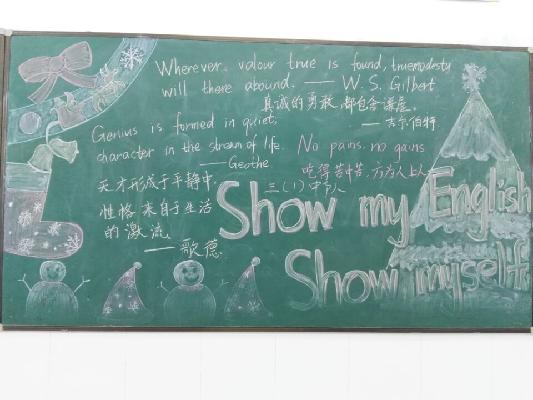 Wherever valour true is found, truemodesty
will there abound. —— W. S. Gilbert
真诚的勇敢,都包含谦虚。
—— 吉尔伯特
Genius is formed in quiet,
character in the stream of life.
—— Geothe
No pains, no gains
吃得苦中苦,方为人上人
天才形成于平静中,
性格来自于生活
的激流。
—— 歌德
三(1)中队
Show my English
Show myself.